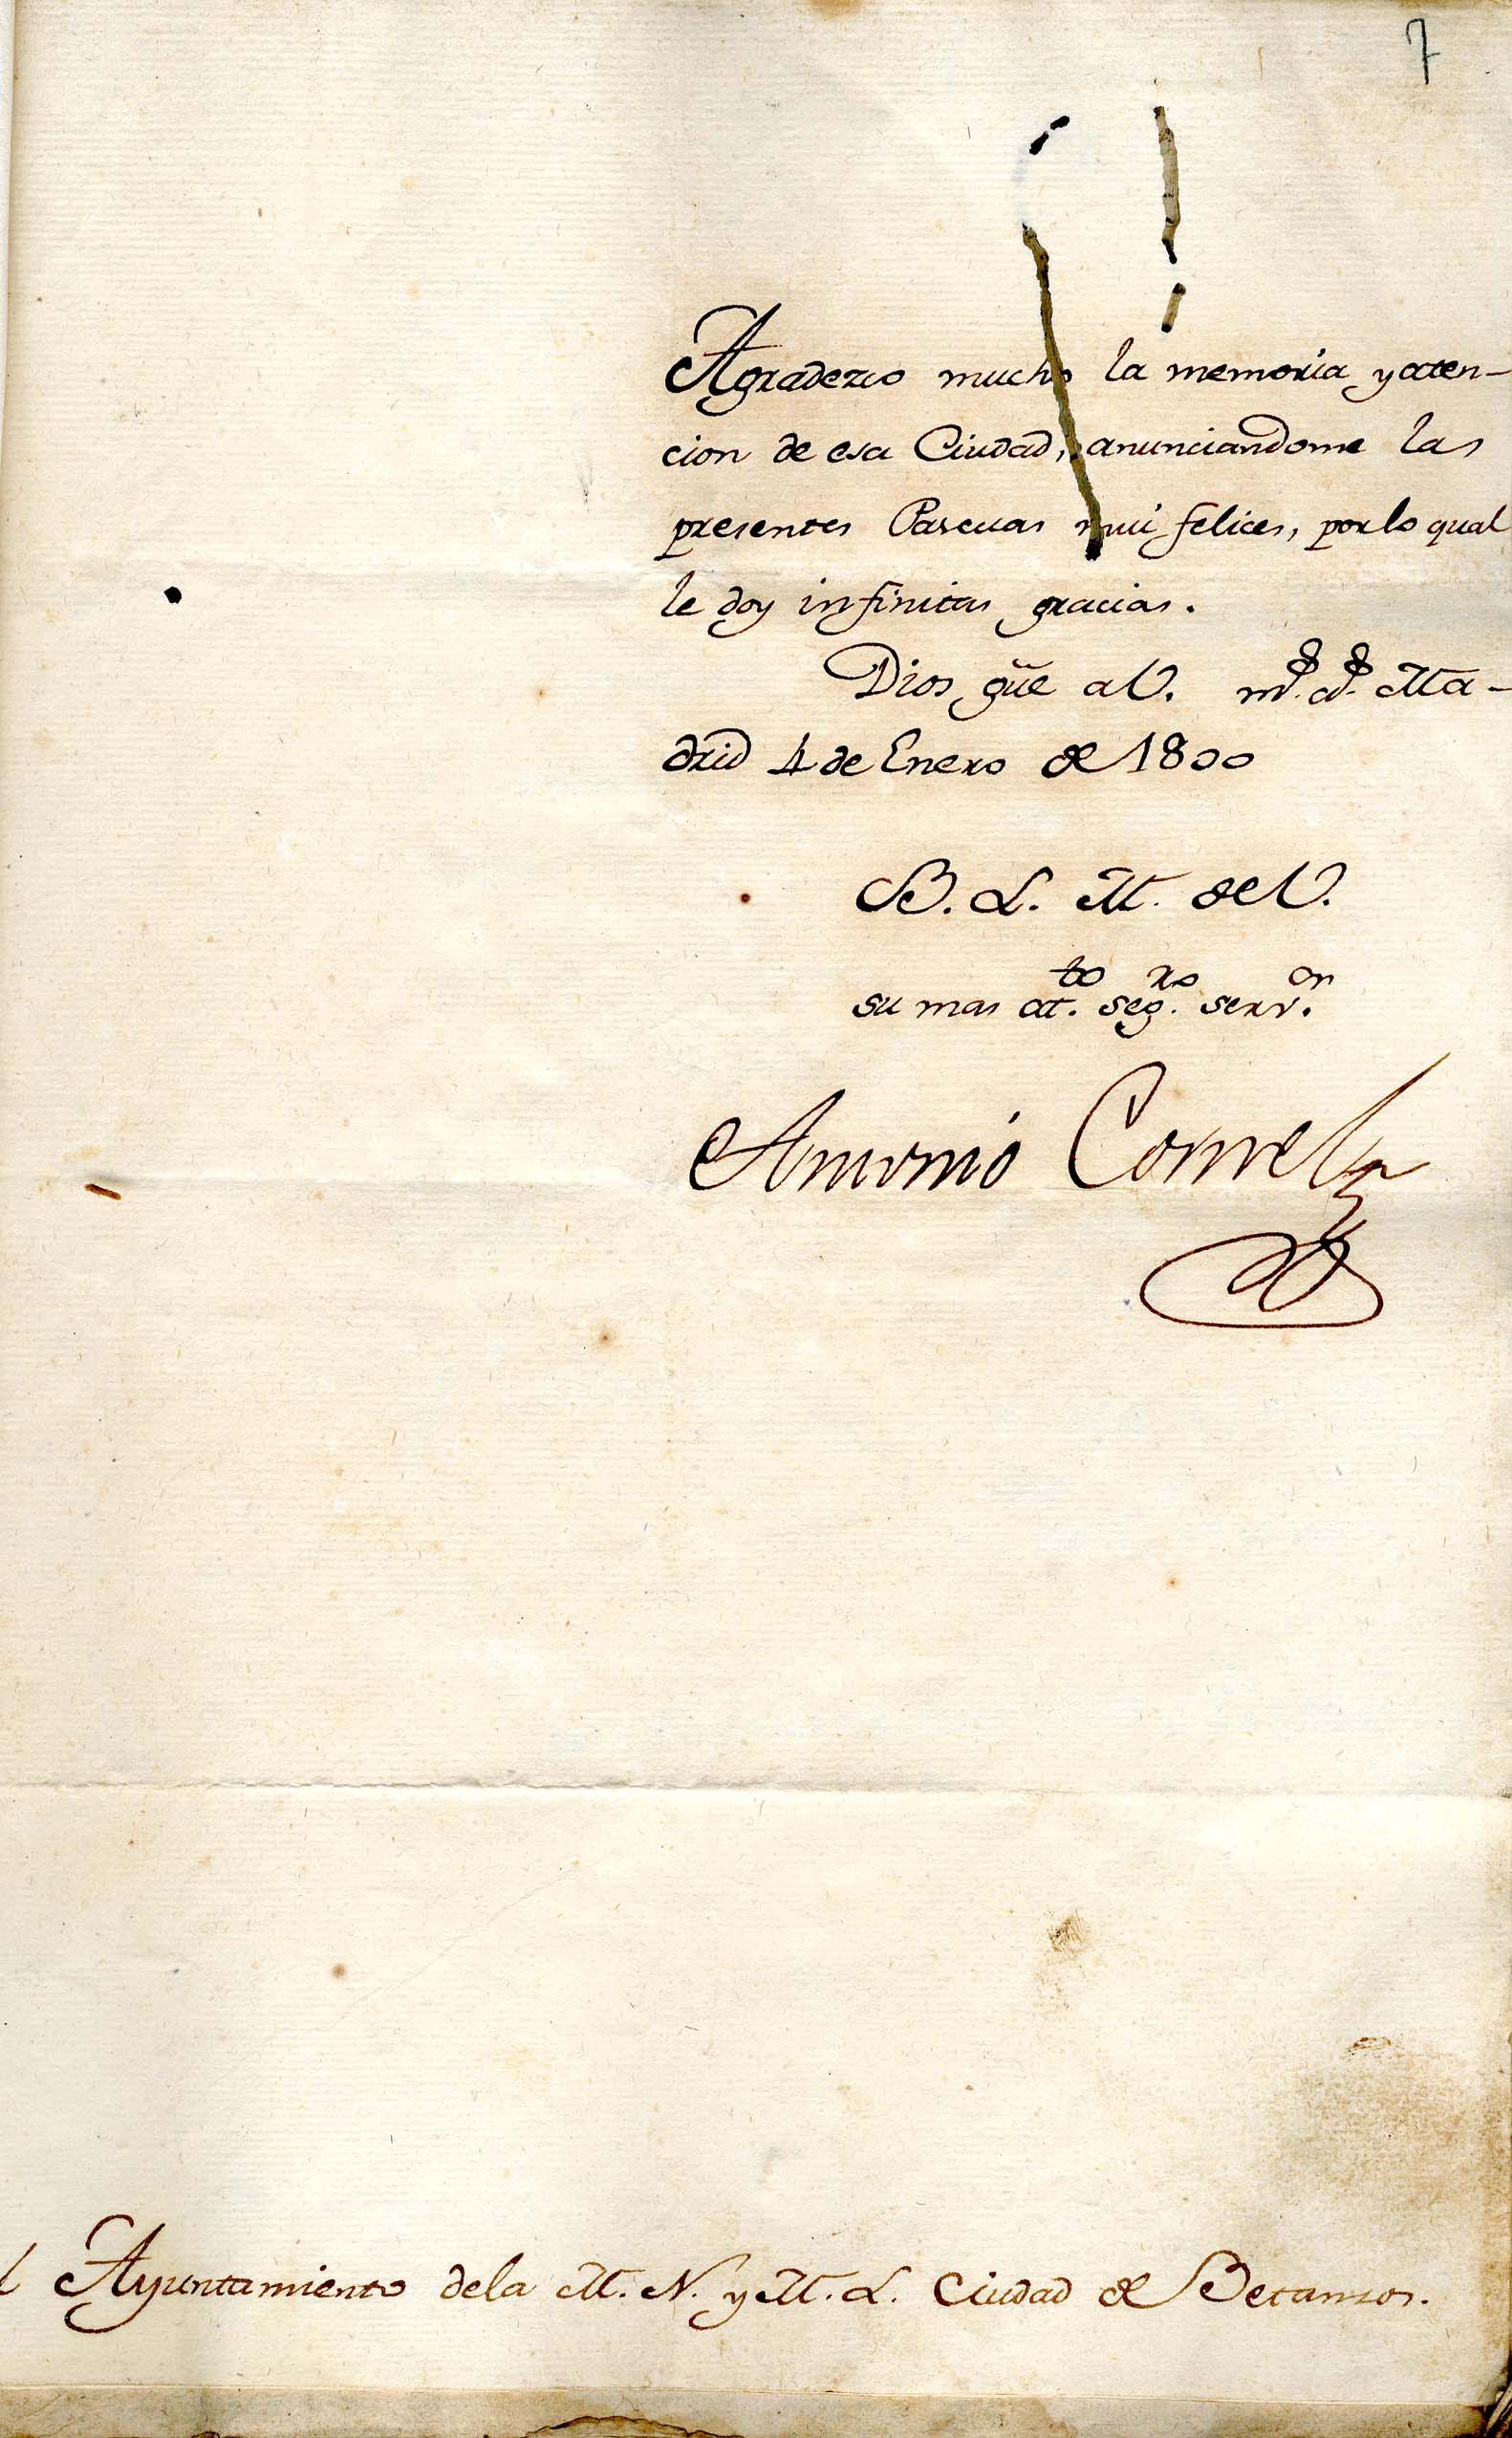 7
Agradezco mucho la memoria y aten-
cion de esa Ciudad, anunciandome las
presentes Pascuas mui felices, por lo qual
le doy infinitas gracias.
Dios gūe a V. m.s a.s Ma-
drid 4 de Enero de 1800
B. L. M. de V.
su mas at.to seg.ro serv.or
Antonio Cornel
l Ayuntamiento dela M. N. y M. L. Ciudad de Betanzos.